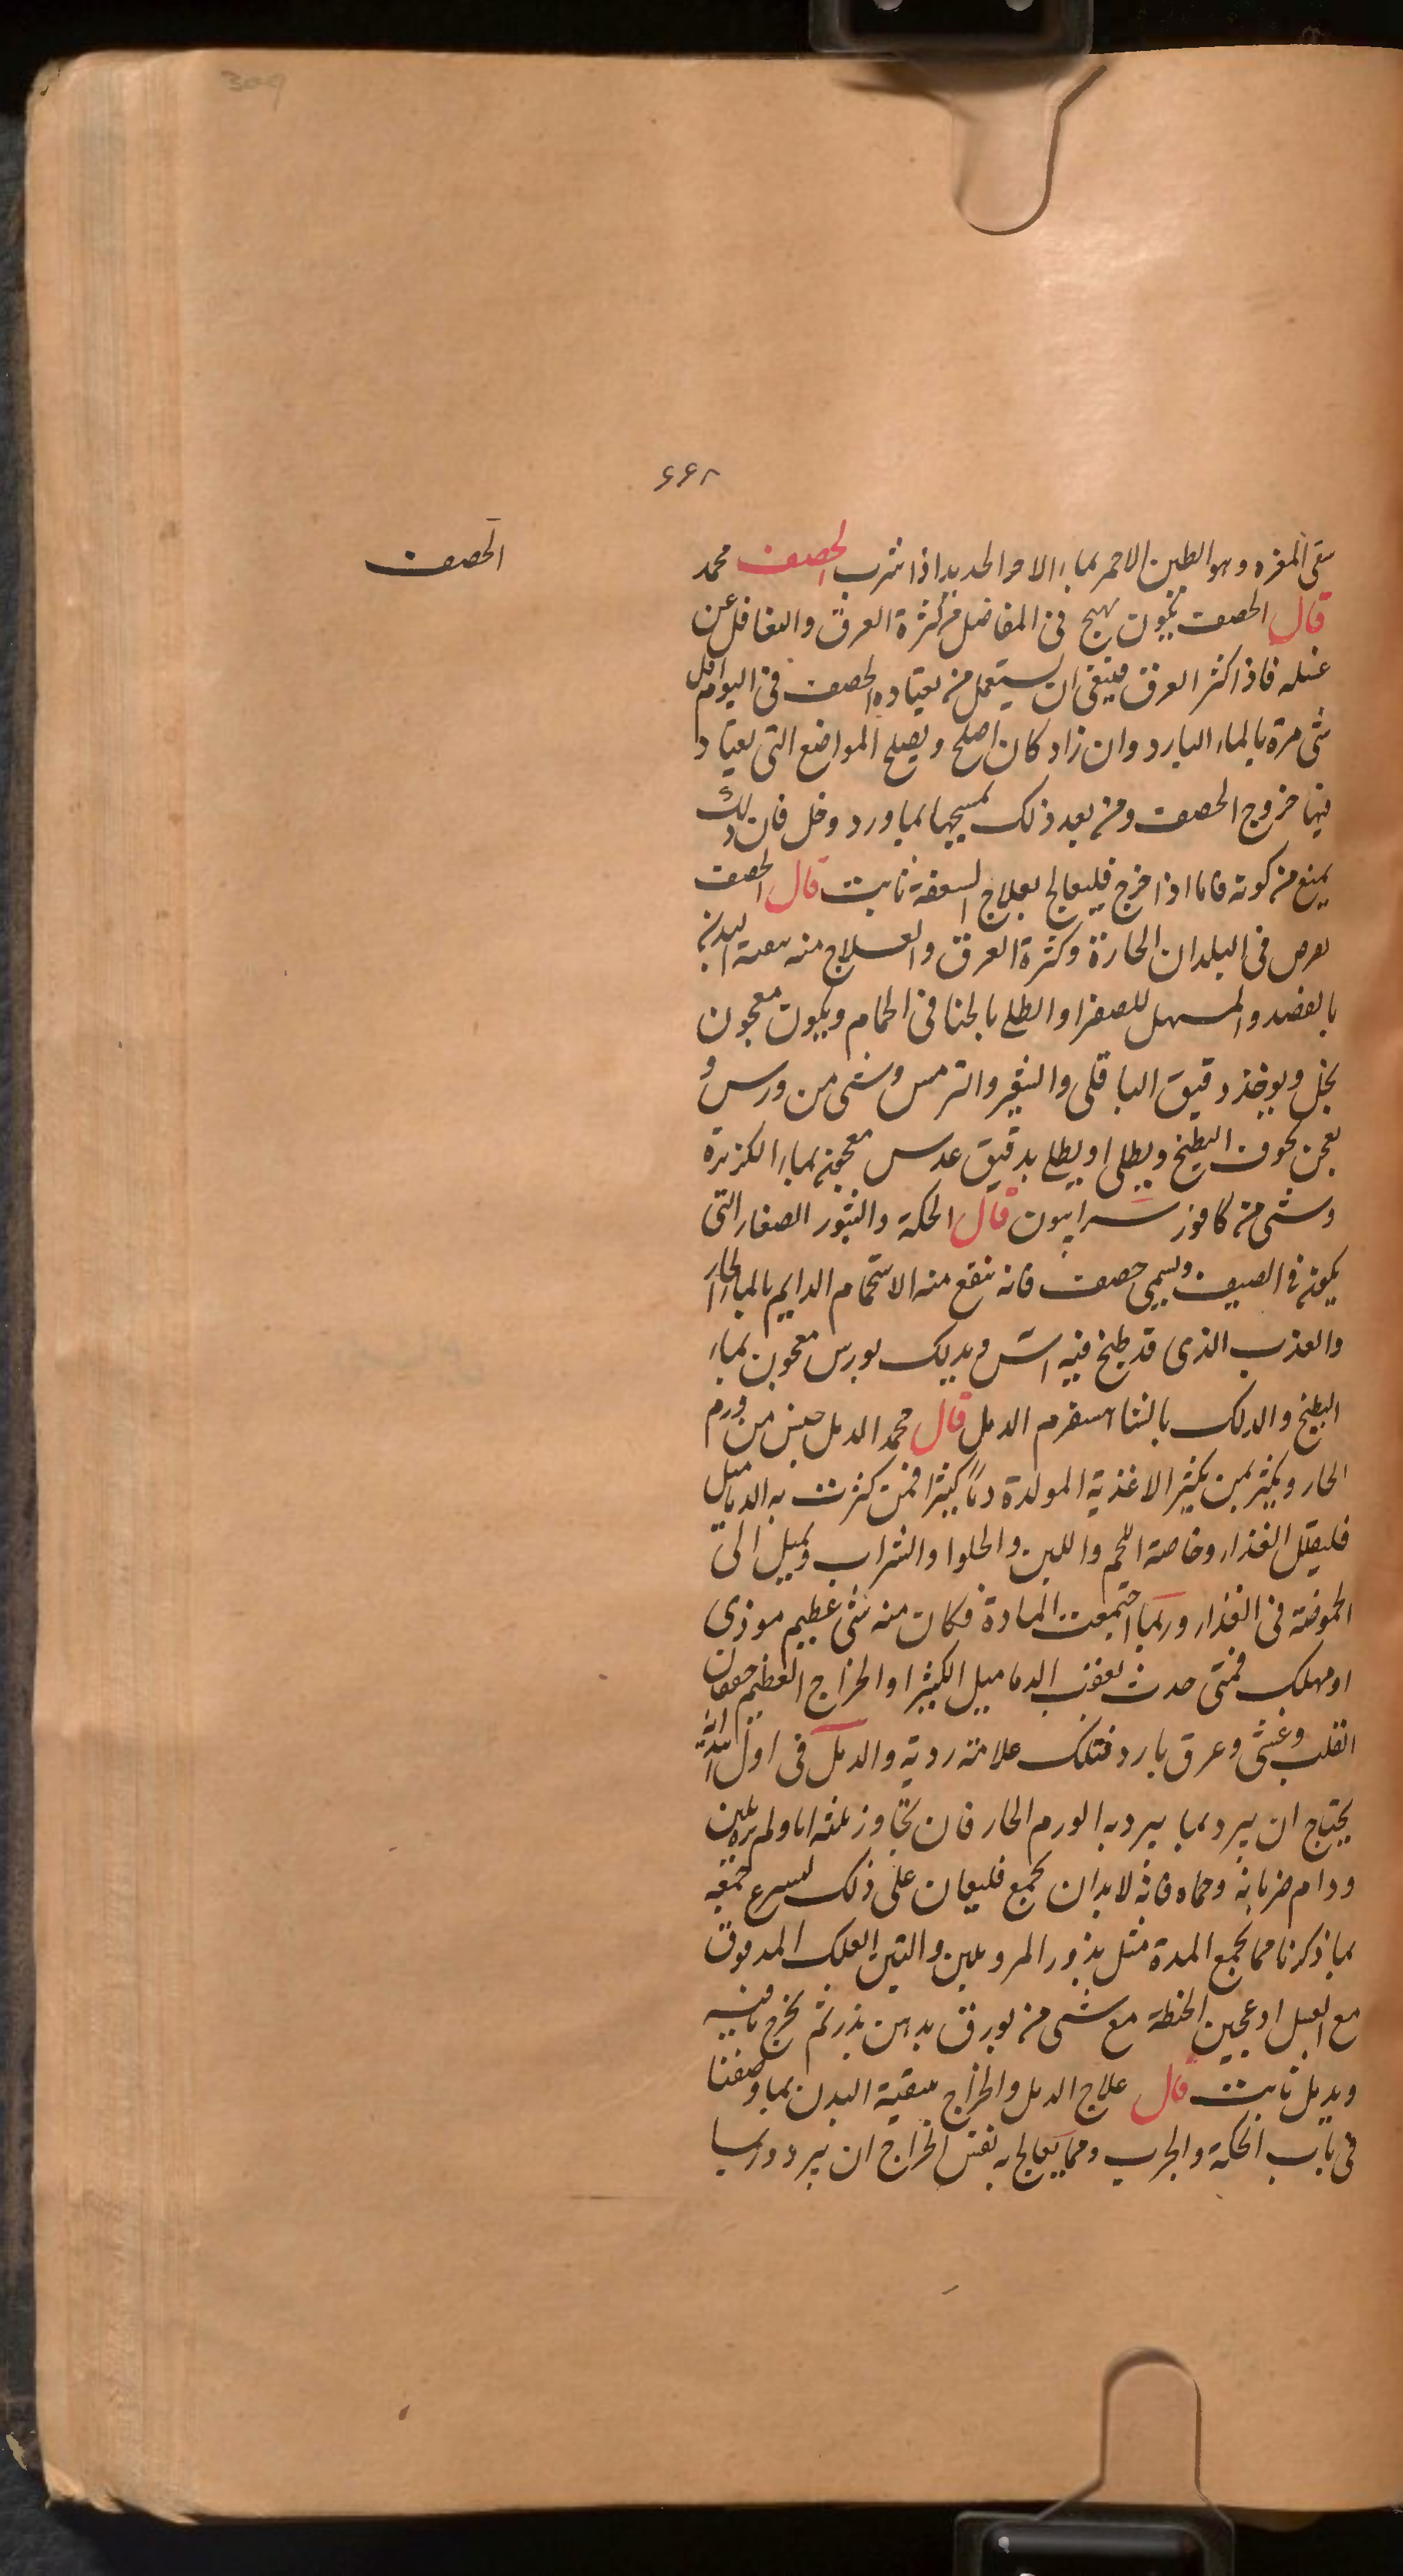 309
۶۶۸
الحصف
سقى المغره وهو الطين الاحمر بماء الا والحديد اذا شرب الحصف محمد
قال الحصف يكون يهيج فى المفاصل من كثرة العرق والتغافل عن
غسله فاذا كثر العرق فينبغى ان يستعمل من يعتاده الحصف فى اليوم اقل
شى مرة بالماء البارد وان زاد كان اصلح ويصلح المواضع التى يعتاد
فيها خروج الحصف ومن بعد ذلك يمسحها بماورد وخل فان ذلك
يمنع من كونه فاما اذا خرج فليعالج بعلاج السعفة ثابت قال الحصف
يعرض فى البلدان الحارة وكثرة العرق والعلاج منه البدن
بالفصد والمسهل للصفرا والطلى بالحنا فى الحمام ويكون معجون
بخل ويوخذ دقيق الباقلى والشعير والترمس وشى من ورس و
يعجن بجوف البطيخ ويطلى او يطلى بدقيق عدس معجون بماء الكزبرة
وشى من كافور سرابيون قال الحكة والبثور الصغار التى
يكون فى الصيف ويسمى حصف فانه ينفع منه الاستحمام الدايم بالماء الحار
والعذب الذى قد طبخ فيه اس ويدلك بورس معجون بماء
البطيخ والدلك بالشاهسفرم الدمل قال محمد الدمل جنس من ورم
الحار ويكثر بمن يكثر الاغذية المولدة دمًا كثيرا فمن كثرت به الدماميل
فليقلل الغذاء وخاصة اللحم واللبن والحلوا والشراب ويميل الى
الحموضة فى الغذاء وربما اجتمعت المادة فكان منه شى عظيم موذى
او مهلك فمتى حدث بعقب الدماميل الكثير او الخراج العظيم خفقان
القلب وغشى وعرق بارد فتلك علامة ردية والدمل فى اول ابتدائه
يحتاج ان يبرد بما يبرد به الورم الحار فان تجاوز ثلثه اياما ولم يلين
ودام ضربانه وحماه فانه لابدان يجمع فليعان على ذلك ليسرع جمعه
بما ذكرنا مما يجمع المدة مثل بذور المرو بلبن والتين العلك المدقوق
مع العسل او عجين الحنطة مع شى من بورق بدهن بذر ثم يخرج ما فيه
ويدمل ثابت قال علاج الدمل والخراج بتنقية البدن بما وصفنا
فى باب الحكة والجرب ومما يعالج به نفس الخراج ان يبرد وربما